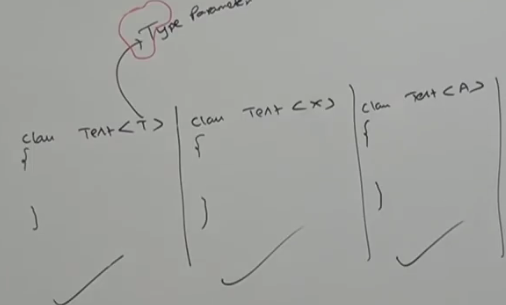 Type Parameter
class Test<T>
{
}
class Test<X>
{
}
class Test<A>
{
}